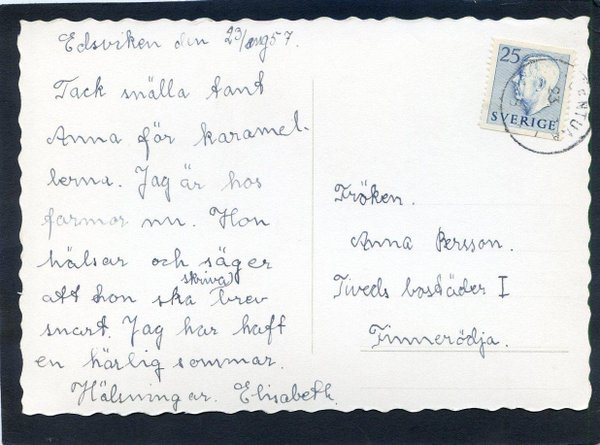 Edsviken den 29/aug 57.
Tack snälla tant
Anna för karamel-
lerna. Jag är hos
farmor nu. Hon
hälsar och säger
skriva
att hon ska brev
snart. Jag har haft
en härlig sommar.
Hälsningar. Elisabeth.
25
SVERIGE
Fröken.
Anna Persson.
Tiveds bostäder I
Finnerödja.